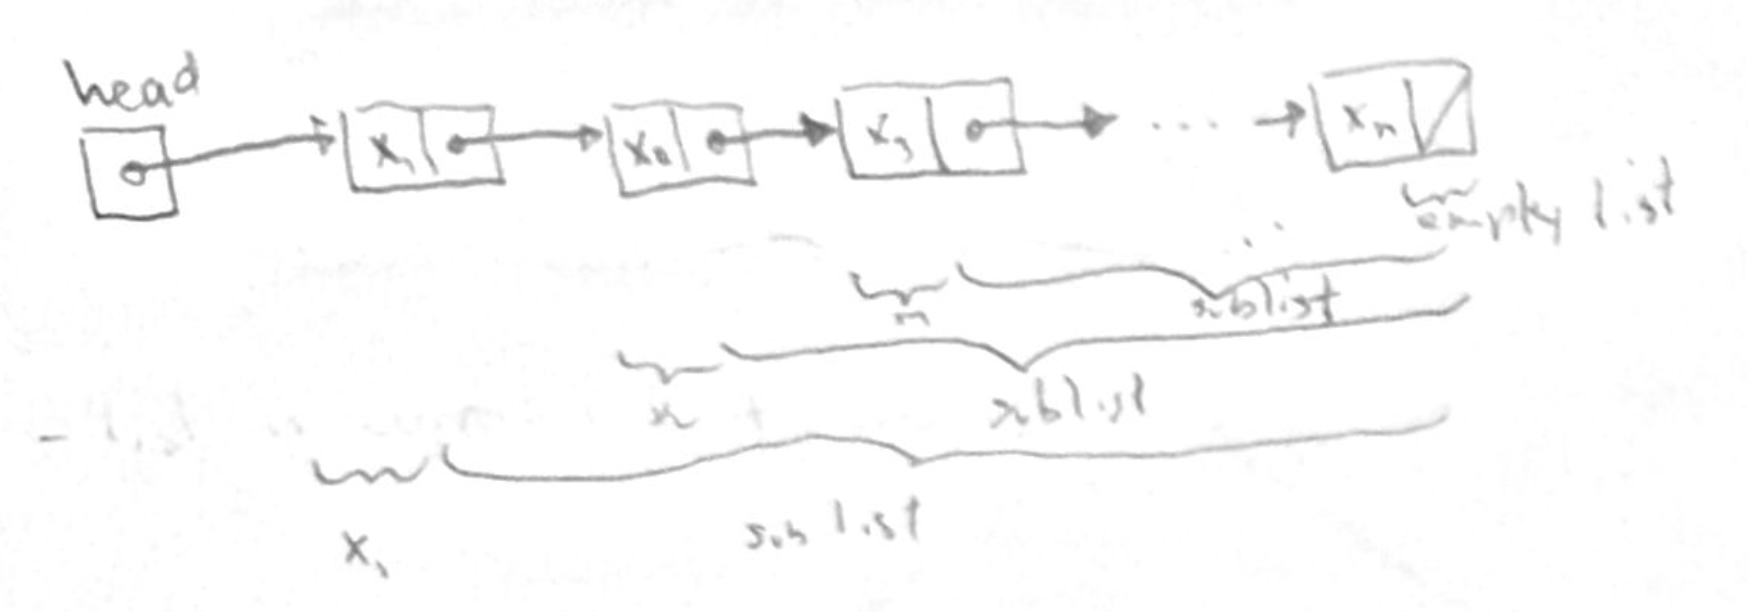 head
x₁ x₂ x₃ ... xₙ
empty list
sublist
x sublist
x₁ sublist